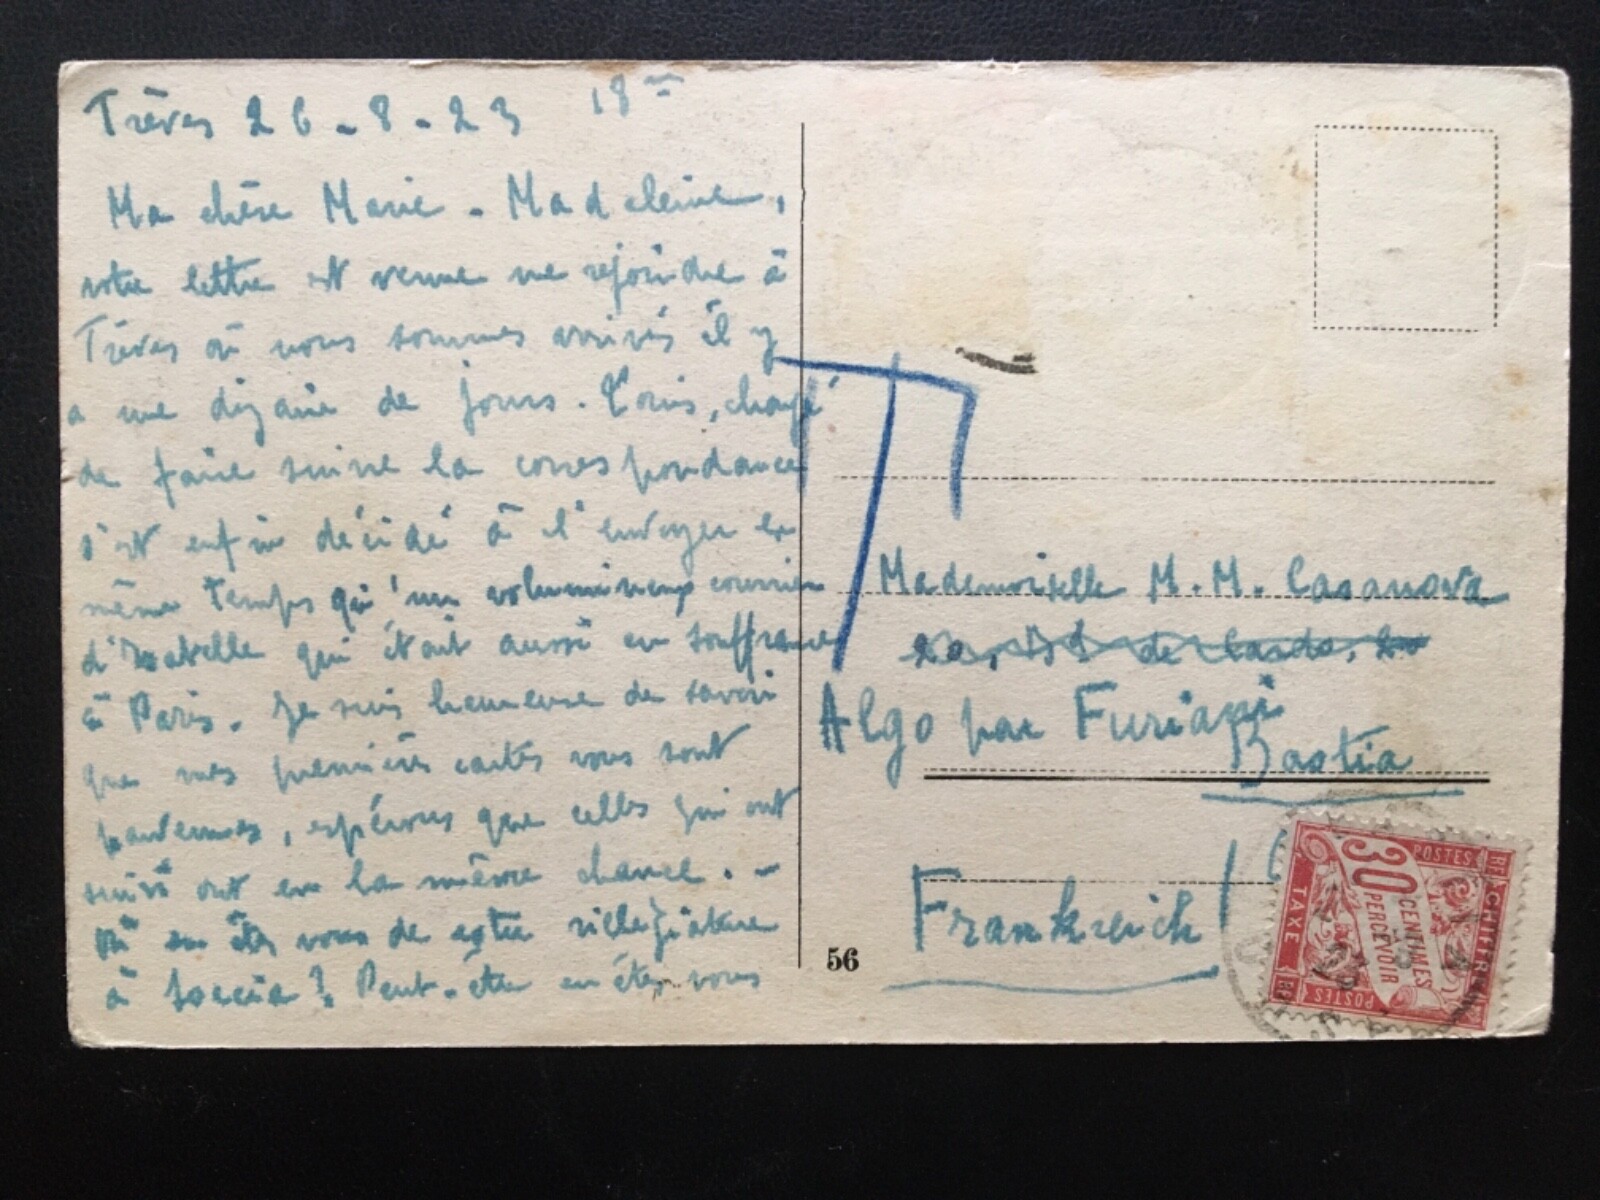 Trèves 26-8-23 18
Ma chère Marie-Madeleine,
votre lettre est venue me rejoindre à
Trèves où nous sommes arrivés il y
a une dizaine de jours. Louis, chargé
de faire suivre la correspondance
s'est enfin décidé à l'envoyer en
même temps qu'un volumineux courrier
d'Isabelle qui était aussi en souffrance
à Paris. Je suis heureuse de savoir
que mes premières cartes vous sont
parvenues, espérons que celles qui ont
suivi ont eu la même chance. -
Où en êtes vous de votre villégiature
à Soccia? Peut-être en êtes vous
T
Mademoiselle M. M. Casanova
Algo par Furiani
Bastia
Frankreich
56
30 CENTIMES
À PERCEVOIR
POSTES
CHIFFRE
TAXE
POSTES